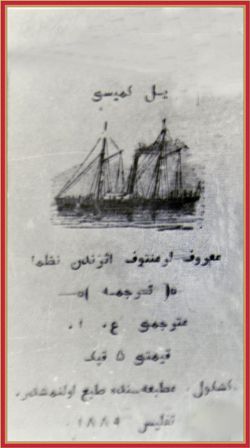 يل كميسى
معروف لرمنتوف اثرندن نظما
ترجمه
مترجمى ع. ا.
قيمتى ۵ قپك
كشكول. مطبعه‌سنده طبع اولنمشدر.
تفليس ۱۸۸۹.